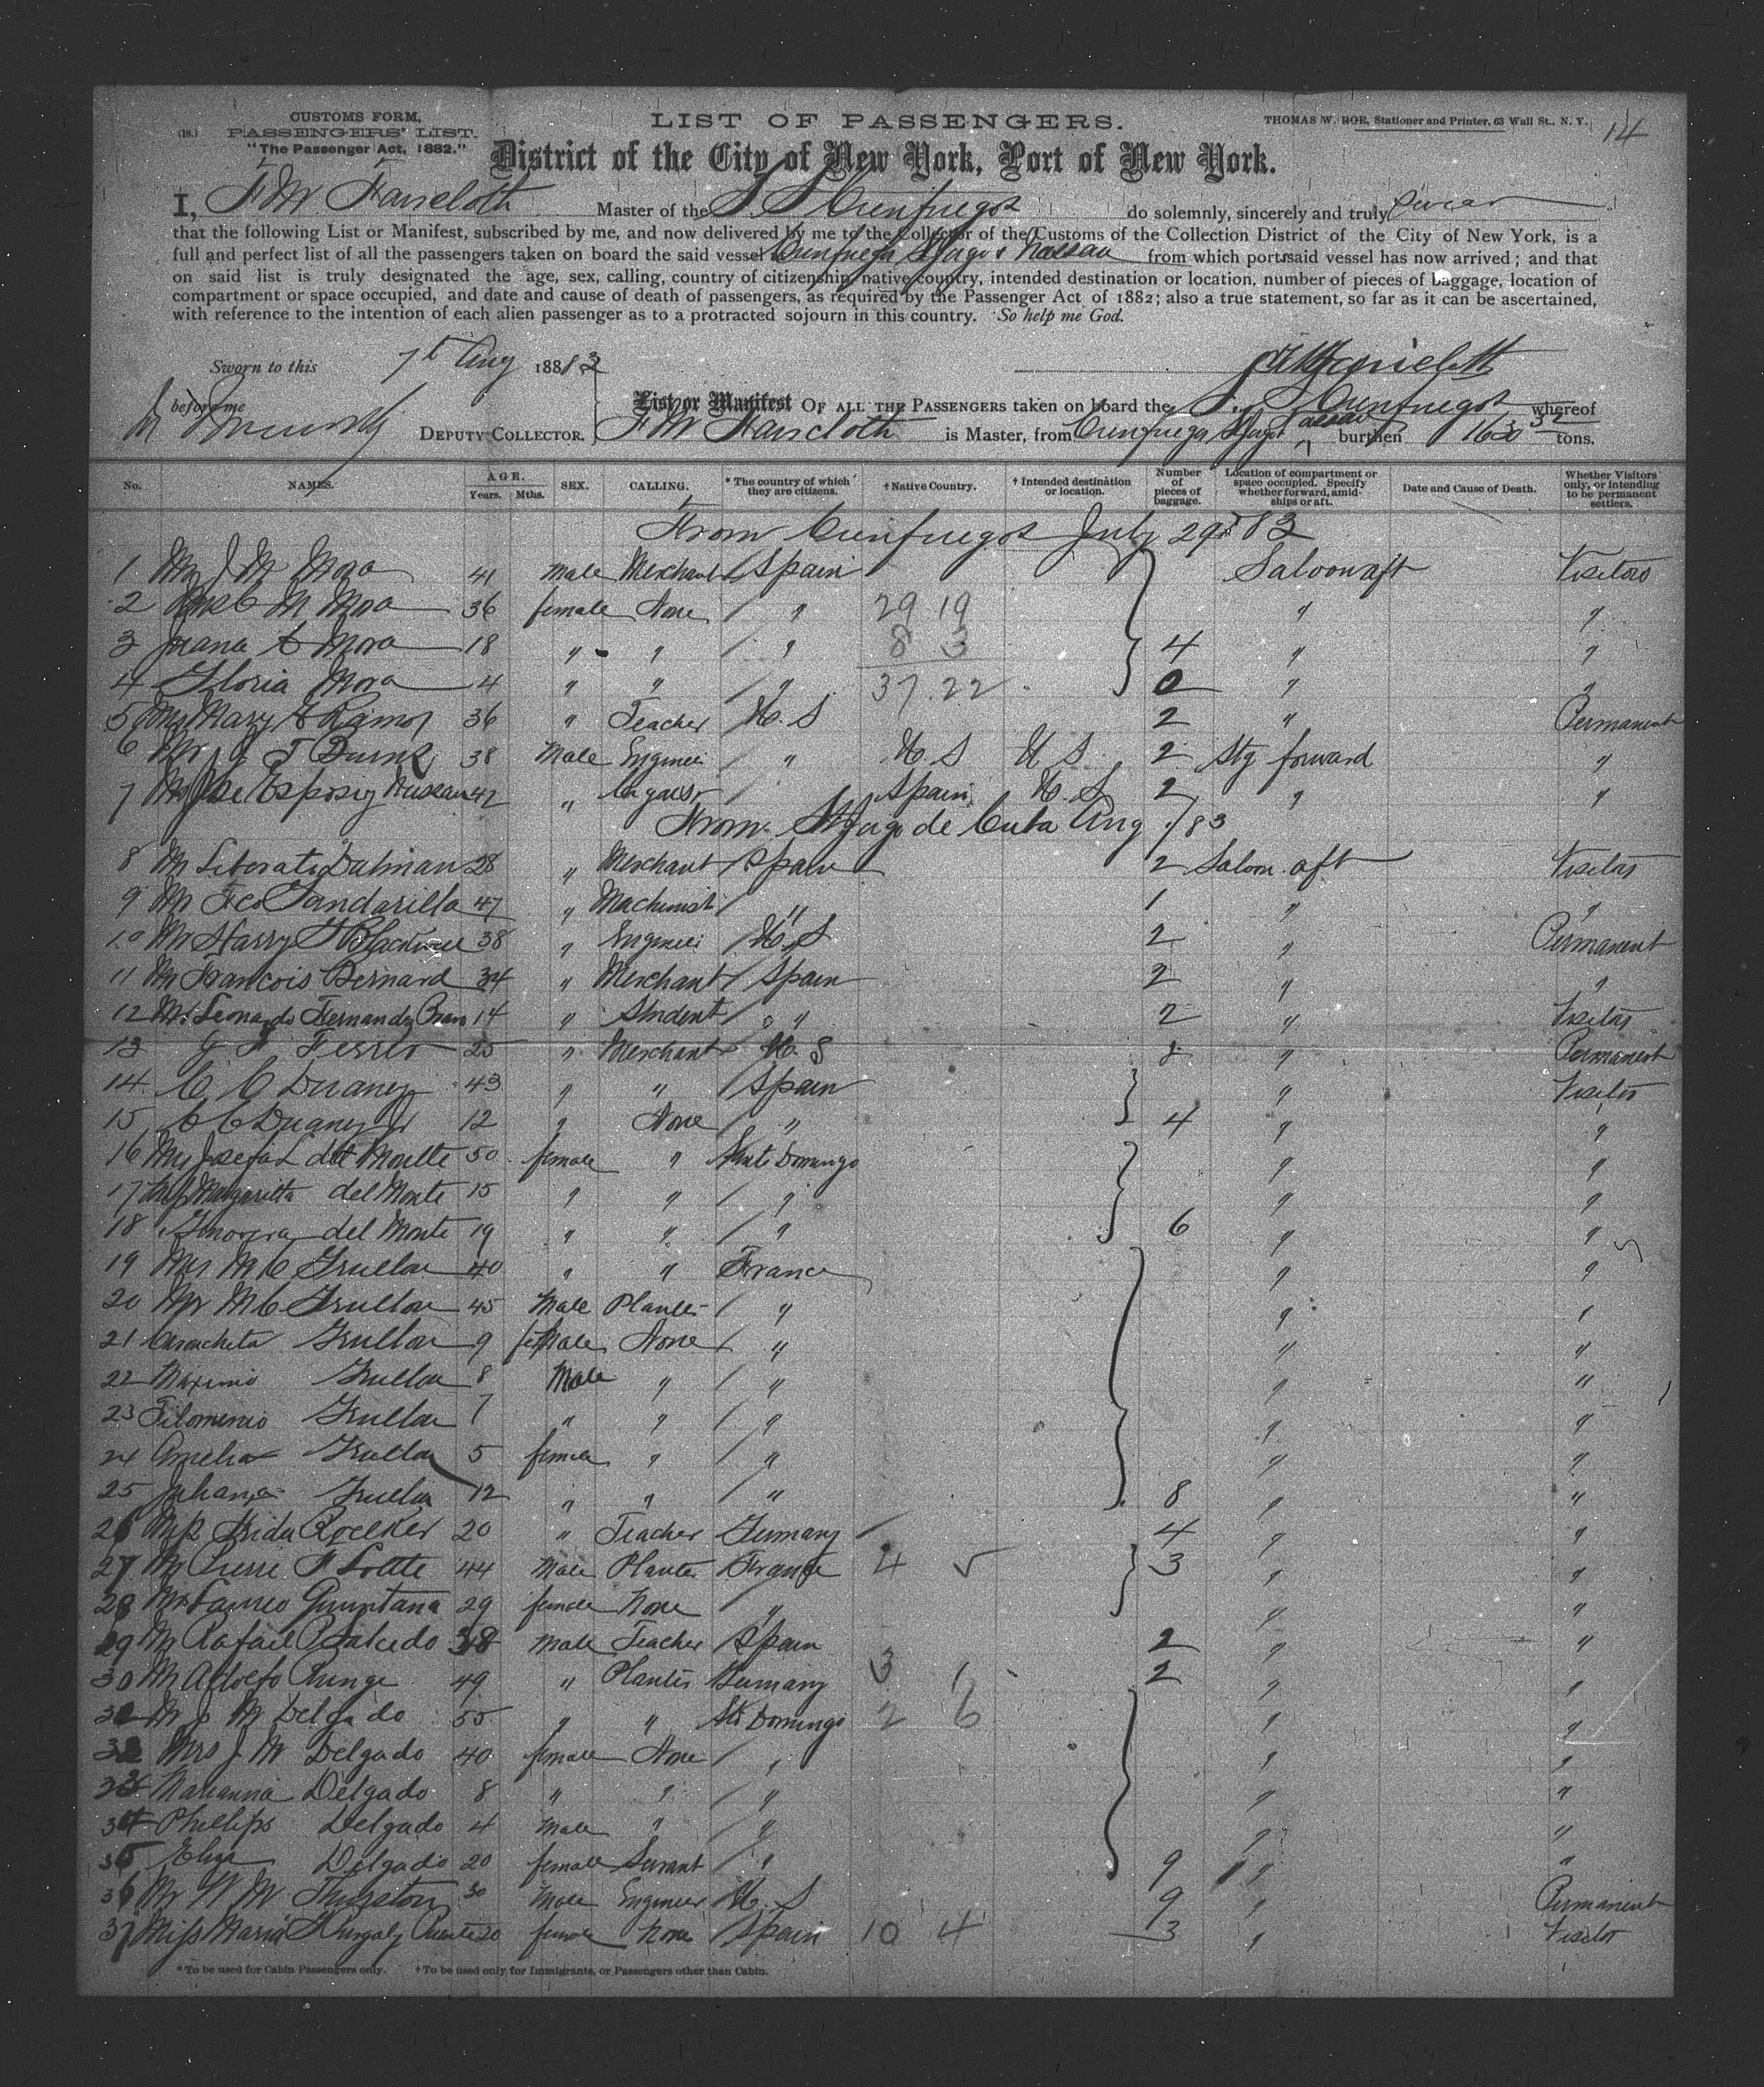 CUSTOMS FORM,
(18.) PASSENGERS' LIST.
"The Passenger Act, 1882."
LIST OF PASSENGERS.
THOMAS W. ROE, Stationer and Printer, 63 Wall St., N. Y.
14
District of the City of New York, Port of New York.
I, F M Faircloth Master of the S S Cienfuegos do solemnly, sincerely and truly swear
that the following List or Manifest, subscribed by me, and now delivered by me to the Collector of the Customs of the Collection District of the City of New York, is a
full and perfect list of all the passengers taken on board the said vessel Cienfuegos St Jago & Nassau from which port said vessel has now arrived; and that
on said list is truly designated the age, sex, calling, country of citizenship, native country, intended destination or location, number of pieces of baggage, location of
compartment or space occupied, and date and cause of death of passengers, as required by the Passenger Act of 1882; also a true statement, so far as it can be ascertained,
with reference to the intention of each alien passenger as to a protracted sojourn in this country. So help me God.
Sworn to this 7th Aug 1883
F M Faircloth
before me
DEPUTY COLLECTOR.
List or Manifest OF ALL THE PASSENGERS taken on board the S. S Cienfuegos whereof
F M Faircloth is Master, from Cienfuegos St Jago Nassau burthen 1630 tons.
No. NAMES. AGE. Years. Mths. SEX. CALLING. * The country of which they are citizens. † Native Country. † Intended destination or location. Number of pieces of baggage. Location of compartment or space occupied. Specify whether forward, amidships or aft. Date and Cause of Death. Whether Visitors only, or intending to be permanent settlers.
From Cienfuegos July 29 83
1 Mr J M Mora 41 male Merchant Spain Saloon aft Visitors
2 Mrs C M Mora 36 female None " 29 19 " "
3 Juana Mora 18 " " " 8 3 4 " "
4 Gloria Mora 4 " " " 37.22 0 " "
5 Mrs Mary Ramos 36 " Teacher U. S 2 " Permanent
6 Mr J T Burnk 38 Male Engineer " U. S U S 2 Stg forward "
7 Mr Jose Esposig 42 " Spain U. S 2 " "
From St Jago de Cuba Aug 1/83
8 Mr Liberato Dalmau 28 " Merchant Spain 2 Saloon aft Visitors
9 Mr Fco Gandarilla 47 " Machinist " 1 " "
10 Mr Harry 38 " Engineer U. S 2 " Permanent
11 Mr Francois Bernard 34 " Merchant Spain 2 " "
12 Mr Leonardo Fernandez 14 " Student " 2 " Visitors
13 J F Ferrer 25 " Merchant U. S " Permanent
14 C C Duany 43 " " Spain " Visitor
15 C C Duany Jr 12 " None " 4 " "
16 Mrs Josefa L del Monte 50 female " Santo Domingo " "
17 Miss Margarita del Monte 15 " " " " "
18 Ginovera del Monte 19 " " " 6 " "
19 Mrs M C Grullon 40 " " France " "
20 Mr M C Grullon 45 Male Planter " " "
21 Grullon 9 female None " " "
22 Maximo Grullon 8 Male " " " "
23 Filomenio Grullon 7 " " " " "
24 Amelia Grullon 5 female " " " "
25 Juliana Grullon 12 " " " 8 " "
26 Miss Frida Roelker 20 " Teacher Germany 4 " "
27 Mr Pierre F Lotte 44 Male Planter France 4 5 3 " "
28 Quintana 29 female None " " "
29 Mr Rafael Salcedo 38 male Teacher Spain 2 " "
30 Mr Adolfo Runge 49 " Planter Germany 3 1 2 " "
31 Mr J M Delgado 55 " " Sto Domingo 2 6 " "
32 Mrs J M Delgado 40 female None " " "
33 Marianna Delgado 8 " " " " "
34 Phillips Delgado 4 male " " " "
35 Eliza Delgado 20 female Servant " 9 " "
36 Mr W M Thurston 30 male Engineer U. S 9 " Permanent
37 Miss Maria 20 female None Spain 10 4 3 " Visitor
* To be used for Cabin Passengers only. † To be used only for Immigrants, or Passengers other than Cabin.